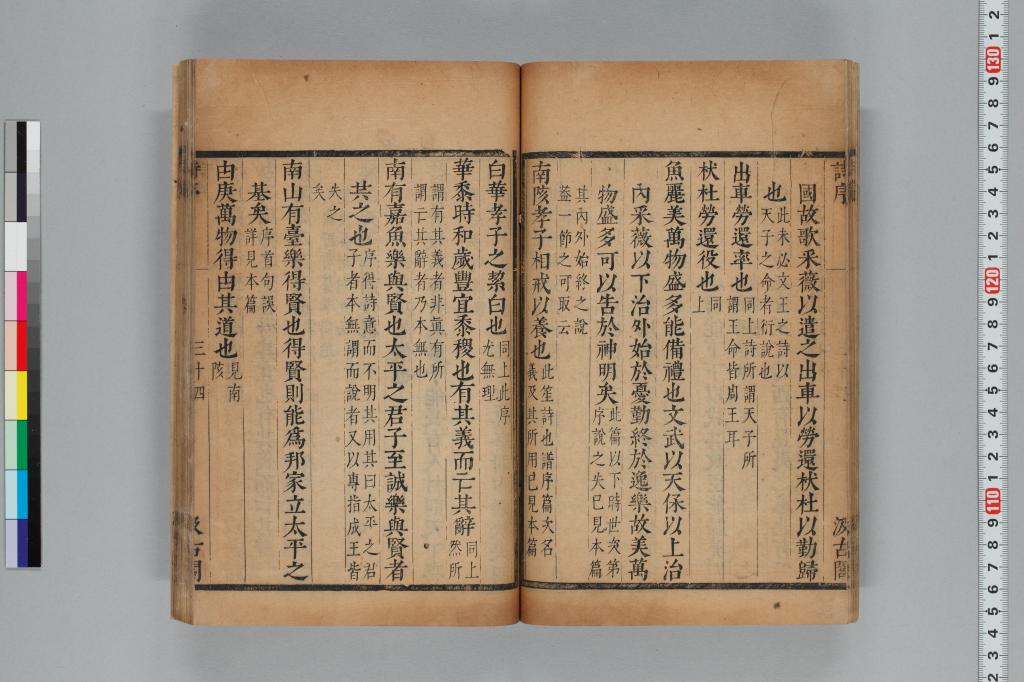 詩序
汲古閣
國故歌采薇以遣之出車以勞還杕杜以勤歸
也此未必文王之詩以
天子之命者衍說也
出車勞還率也同上詩所謂天子所
謂王命皆周王耳
杕杜勞還役也同
上
魚麗美萬物盛多能備禮也文武以天保以上治
內采薇以下治外始於憂勤終於逸樂故美萬
物盛多可以告於神明矣此篇以下時世次第
序說之失已見本篇
其內外始終之說
益一節之可取云
南陔孝子相戒以養也此笙詩也譜序篇次名
義及其所用已見本篇
白華孝子之絜白也同上此序
尤無理
華黍時和歲豐宜黍稷也有其義而亡其辭同上
然所
謂有其義者非眞有所
謂亡其辭者乃本無也
南有嘉魚樂與賢也太平之君子至誠樂與賢者
共之也序得詩意而不明其用其曰太平之君
子者本無謂而說者又以專指成王皆
失之
矣
南山有臺樂得賢也得賢則能爲邦家立太平之
基矣序首句誤
詳見本篇
由庚萬物得由其道也見南
陔
三十四
汲古閣